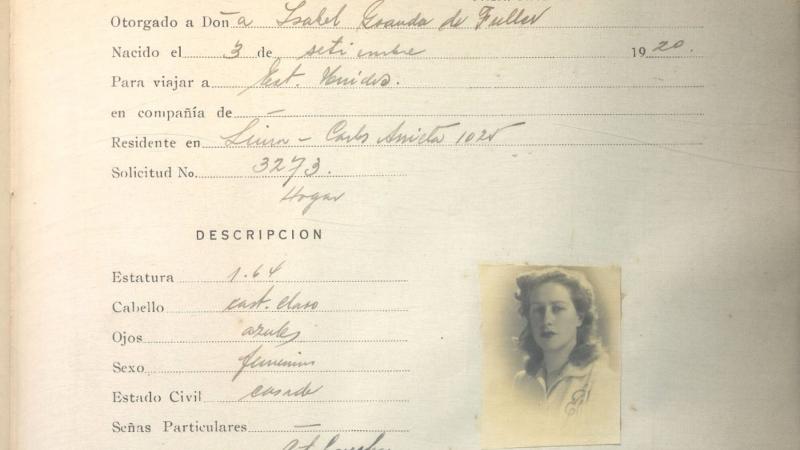 Otorgado a Don a Isabel Granda de Fuller
Nacido el 3 de setiembre 1920.
Para viajar a Est. Unidos.
en compañía de —
Residente en Lima - Carlos Arrieta 1025
Solicitud No. 3273.
Hogar
DESCRIPCION
Estatura 1.64
Cabello cast. claro
Ojos azules
Sexo femenino
Estado Civil casada
Señas Particulares —